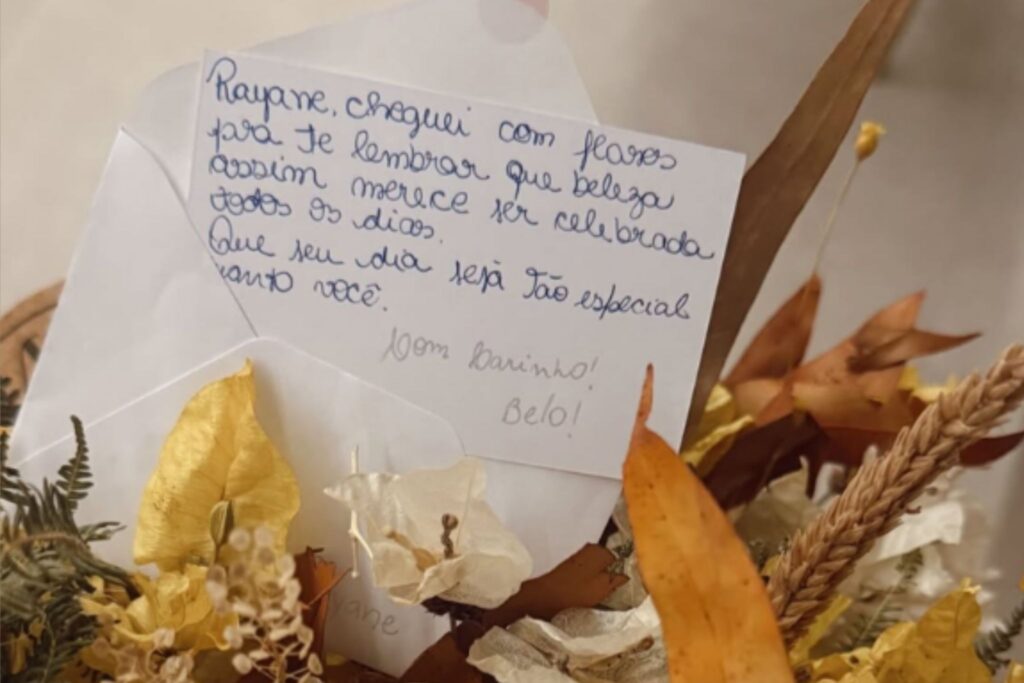 Rayane, cheguei com flores
pra te lembrar que beleza
assim merece ser celebrada
todos os dias.
Que seu dia seja tão especial
uanto você.
Com Carinho!
Belo!
yane